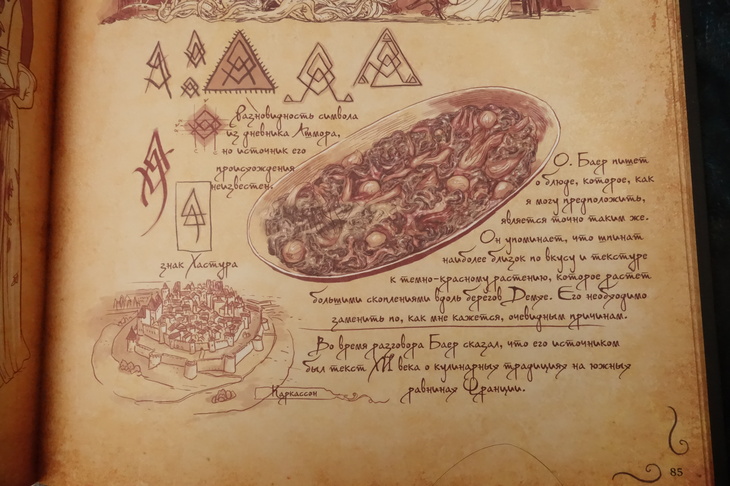 Разновидность символа
из дневника Лтмора,
но источник его
происхождения
неизвестен.
знак Хастура
О. Баер пишет
о блюде, которое, как
я могу предположить,
является точно таким же.
Он упоминает, что шпинат
наиболее близок по вкусу и текстуре
к темно-красному растению, которое растет
большими скоплениями вдоль берегов Демхе. Его необходимо
заменить по, как мне кажется, очевидным причинам.
Во время разговора Баер сказал, что его источником
был текст XII века о кулинарных традициях на южных
равнинах Франции.
Каркассон
85